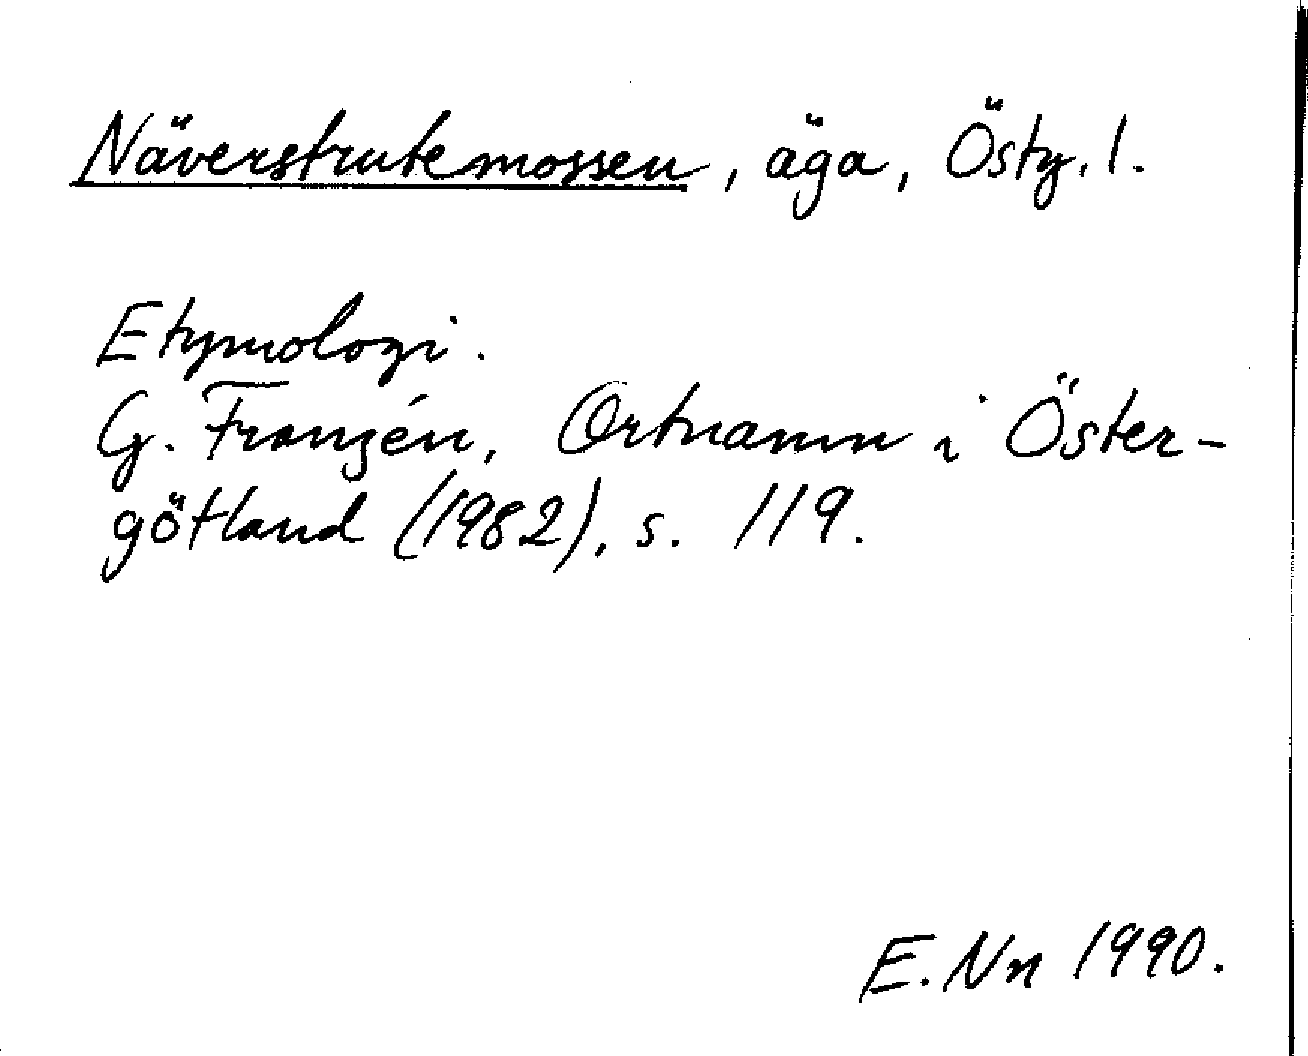 Näverstrutemossen, äga, Östg. l.
Etymologi.
G. Franzén, Ortnamn i Öster-
götland (1982), s. 119.
E. Nn 1990.